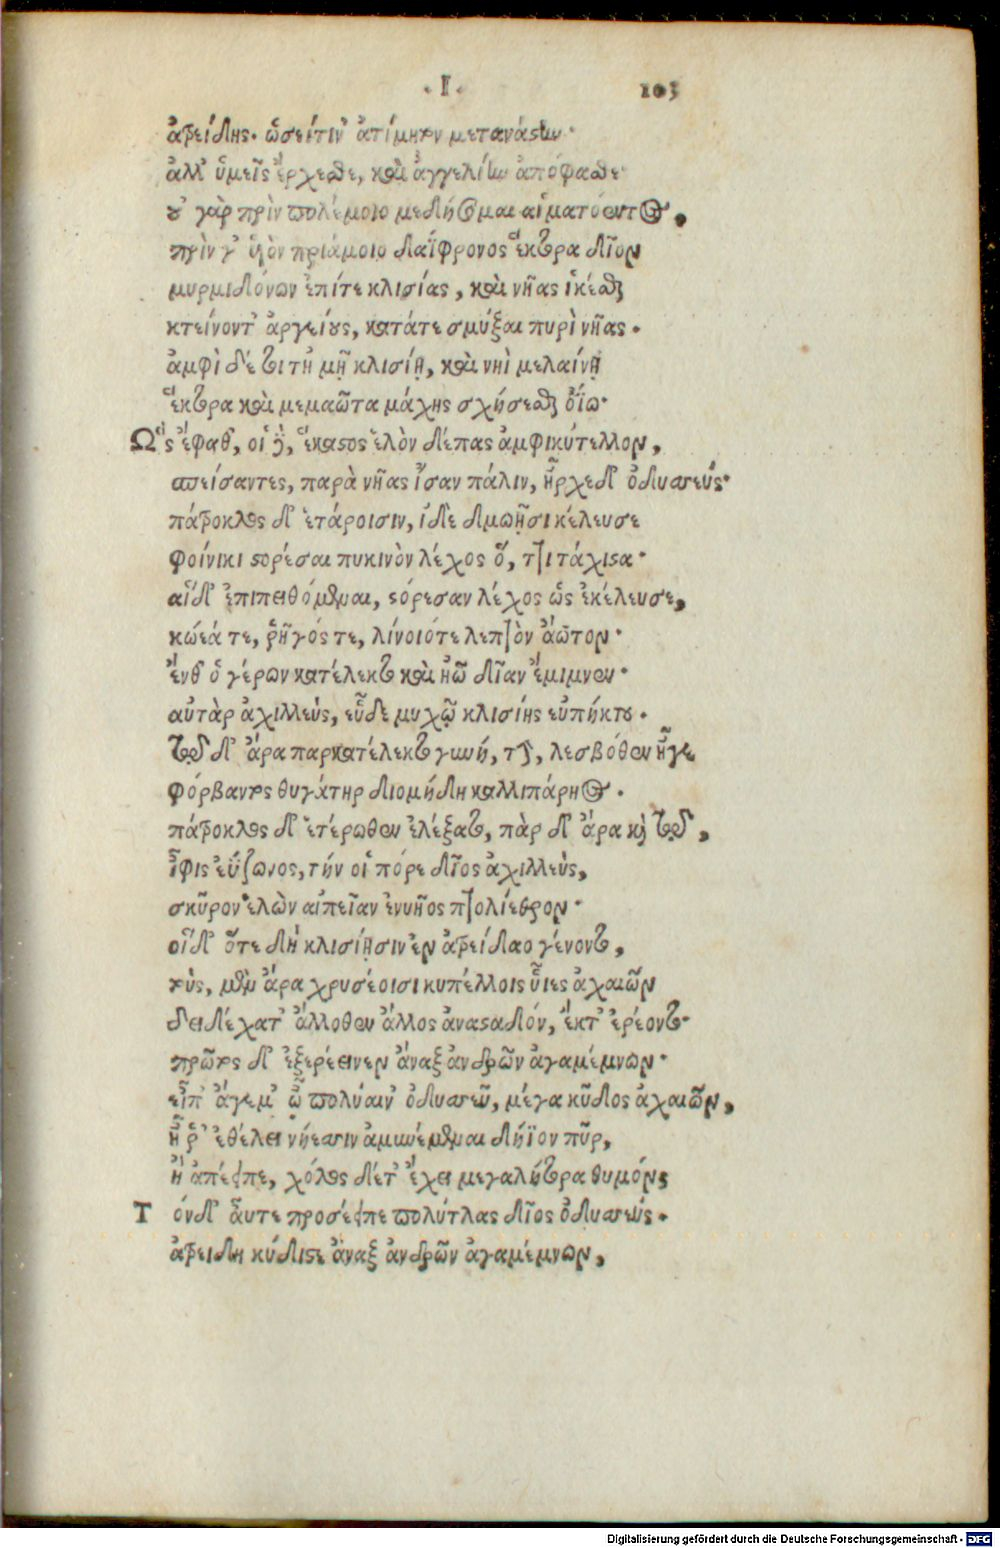 · Ι · 103
ἀτρείδης. ὡσείτιν' ἀτίμητον μετανάστην·
ἀλλ' ὑμεῖς ἔρχεσθε, καὶ ἀγγελίην ἀπόφασθε·
οὐ γὰρ πρὶν πολέμοιο μεδήσομαι αἱματόεντος,
πρὶν γ' υἱὸν πριάμοιο δαΐφρονος ἕκτορα δῖον
μυρμιδόνων ἐπίτε κλισίας, καὶ νῆας ἱκέσθαι
κτείνοντ' ἀργείους, κατάτε σμύξαι πυρὶ νῆας.
ἀμφὶ δέ τοι τῇ μῇ κλισίῃ, καὶ νηῒ μελαίνῃ
ἕκτορα καὶ μεμαῶτα μάχης σχήσεσθαι ὀΐω·
Ὣς ἔφαθ', οἱ δὲ, ἕκαστος ἑλὸν δέπας ἀμφικύπελλον,
σπείσαντες, παρὰ νῆας ἴσαν πάλιν, ἦρχε δ' ὀδυσσεύς·
πάτροκλος δ' ἑτάροισιν, ἰδὲ δμωῇσι κέλευσε
φοίνικι στορέσαι πυκινὸν λέχος ὅ, ττι τάχιστα·
αἱ δ' ἐπιπειθόμεναι, στόρεσαν λέχος ὡς ἐκέλευσε,
κώεά τε, ῥῆγός τε, λίνοιότε λεπτὸν ἄωτον·
ἔνθ' ὁ γέρων κατέλεκτο καὶ ἠῶ δῖαν ἔμιμνεν·
αὐτὰρ ἀχιλλεὺς, εὗδε μυχῷ κλισίης εὐπήκτου.
τῷ δ' ἄρα παρκατέλεκτο γυνή, τὴν, λεσβόθεν ἦγε
φόρβαντος θυγάτηρ διομήδη καλλιπάρῃος.
πάτροκλος δ' ἑτέρωθεν ἐλέξατο, πὰρ δ' ἄρα καὶ τῷ,
ἶφις ἐΰζωνος, τήν οἱ πόρε δῖος ἀχιλλεὺς,
σκῦρον ἑλὼν αἰπεῖαν ἐνυῆος πτολίεθρον·
οἱ δ' ὅτε δὴ κλισίῃσιν ἐν ἀτρείδαο γένοντο,
τοὺς, μὲν ἄρα χρυσέοισι κυπέλλοις υἷες ἀχαιῶν
δειδέχατ' ἄλλοθεν ἄλλος ἀνασταδόν, ἔκτ' ἐρέοντο·
πρῶτος δ' ἐξερέεινεν ἄναξ ἀνδρῶν ἀγαμέμνων·
εἶπ' ἄγεμ' ὦ πολύαιν' ὀδυσεῦ, μέγα κῦδος ἀχαιῶν,
ἦ ῥ' ἐθέλει νήεσσιν ἀμυνέμεναι δήϊον πῦρ,
ἢ ἀπέειπε, χόλος δέτ' ἔχει μεγαλήτορα θυμόν;
Τ όνδ' αὖτε προσέειπε πολύτλας δῖος ὀδυσσεύς.
ἀτρείδη κύδιστε ἄναξ ἀνδρῶν ἀγαμέμνων,
Digitalisierung gefördert durch die Deutsche Forschungsgemeinschaft - DFG